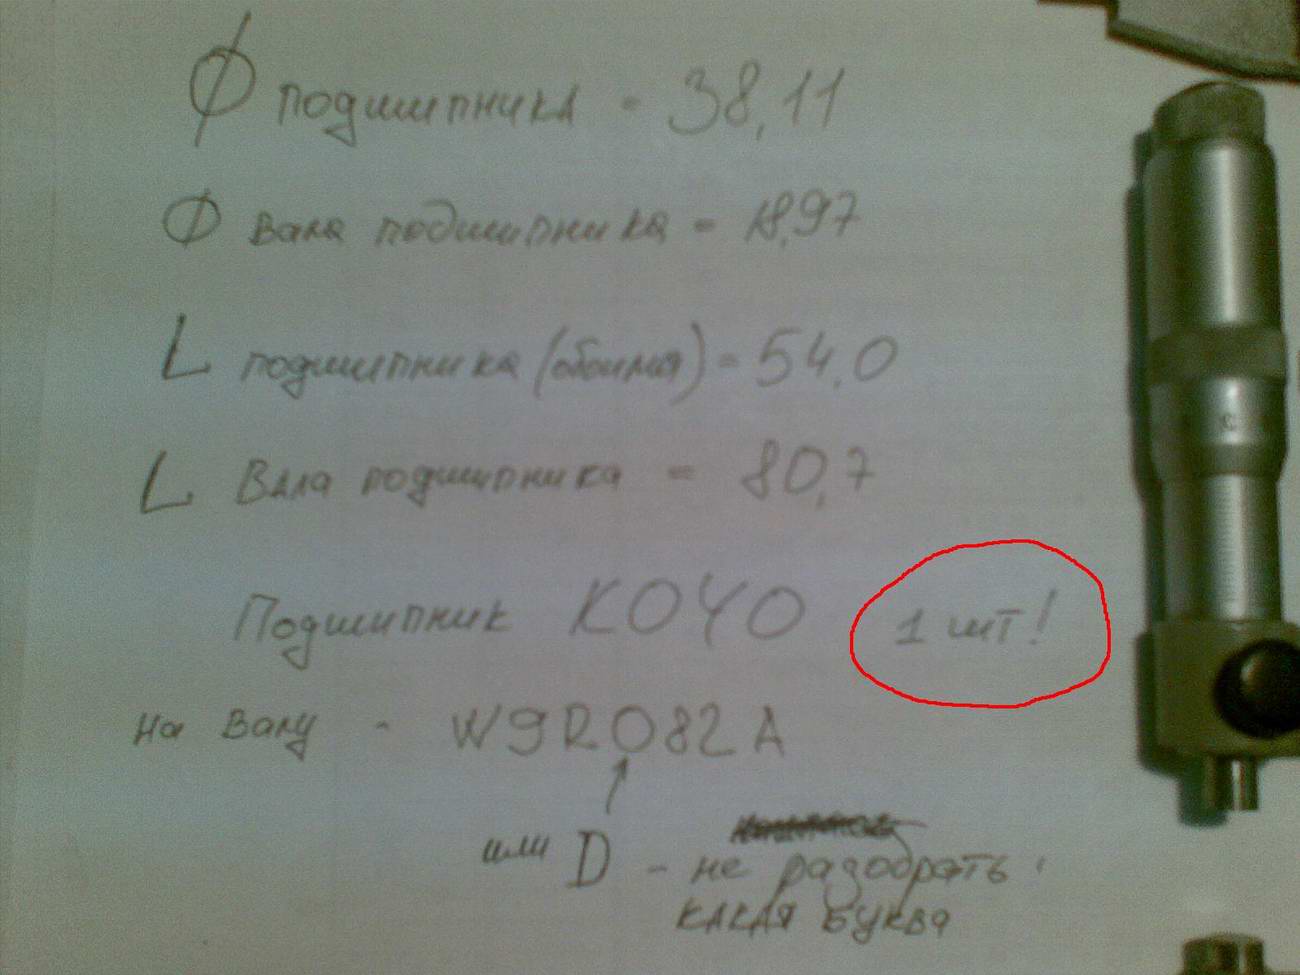 Ø подшипника - 38,11
Ø вала подшипника = 18,97
L подшипника (обойма) = 54,0
L вала подшипника = 80,7
Подшипник KOYO 1 шт!
на валу - W9R082A
или D - не разобрать
какая буква